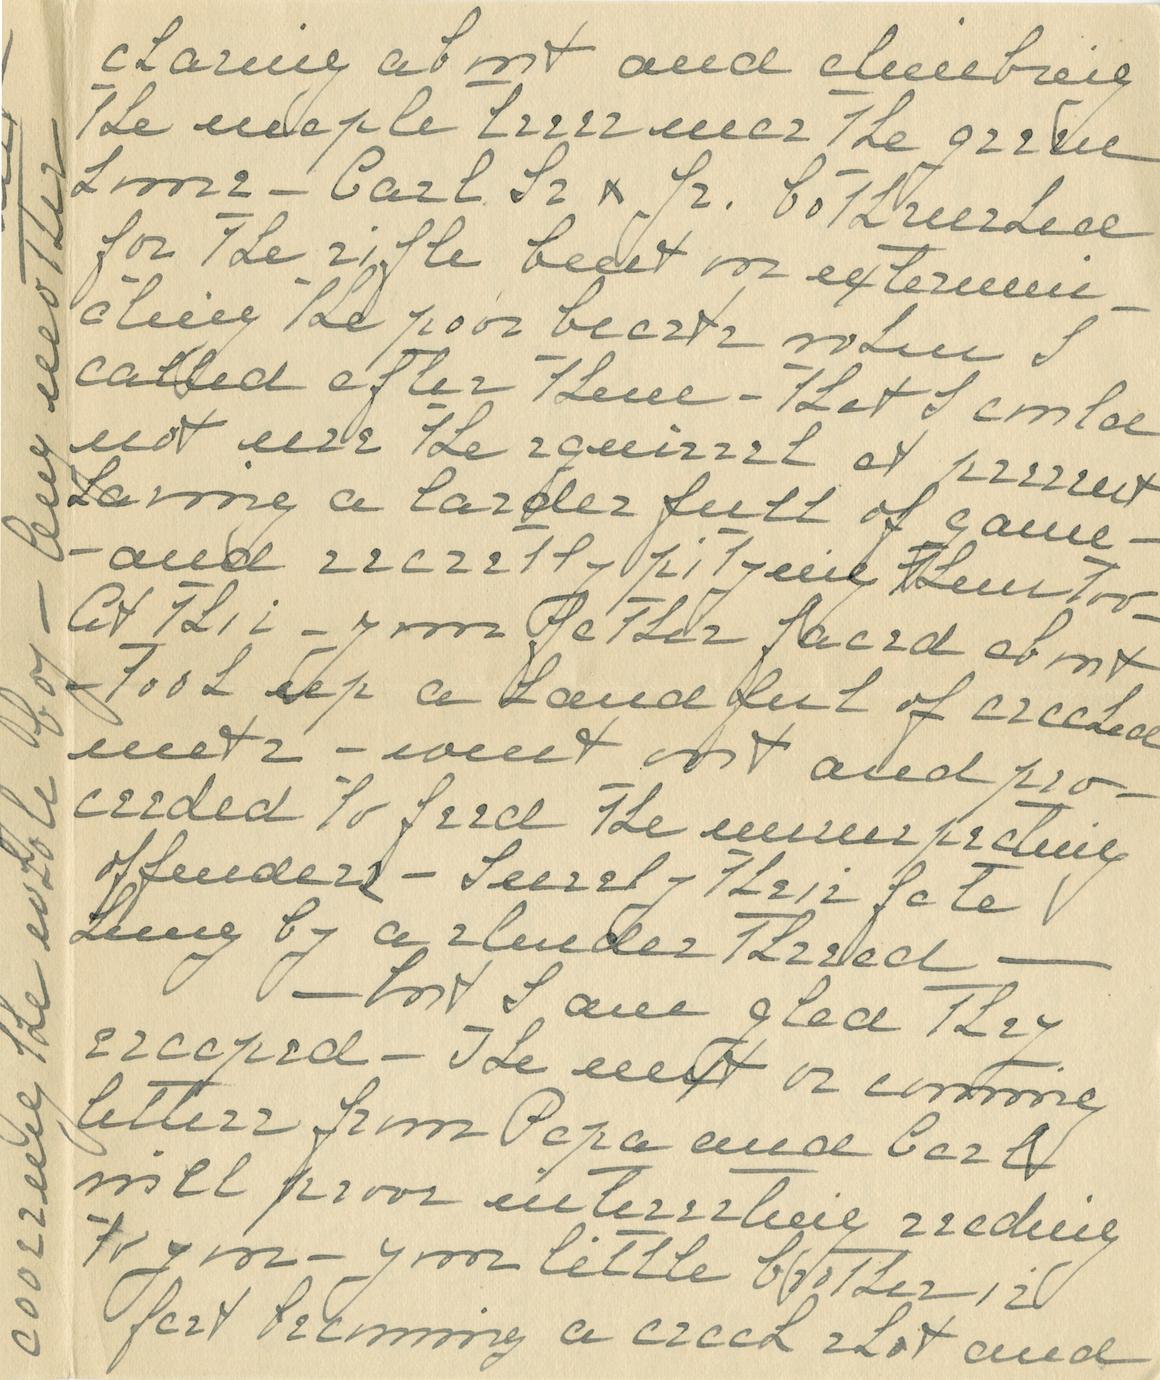 chasing about and climbing
the maple trees near the green
house - Carl Sr & Jr. both rushed
for the rifle bent on extermin-
ating the poor beasts when I
called after them - that I could
not use the squirrel at present
having a larder full of game -
- and secretly pitying them too -
At this - your Father faced about
- took up a handful of cracked
nuts - went out and pro-
ceeded to feed the unsuspecting
offenders - Surely their fate
hung by a slender thread —
— but I am glad they
escaped - The next or coming
letters from Papa and Carl
will proove interesting reading
to you - your little brother is
fast becoming a crack shot and
the whole boy - Any mother